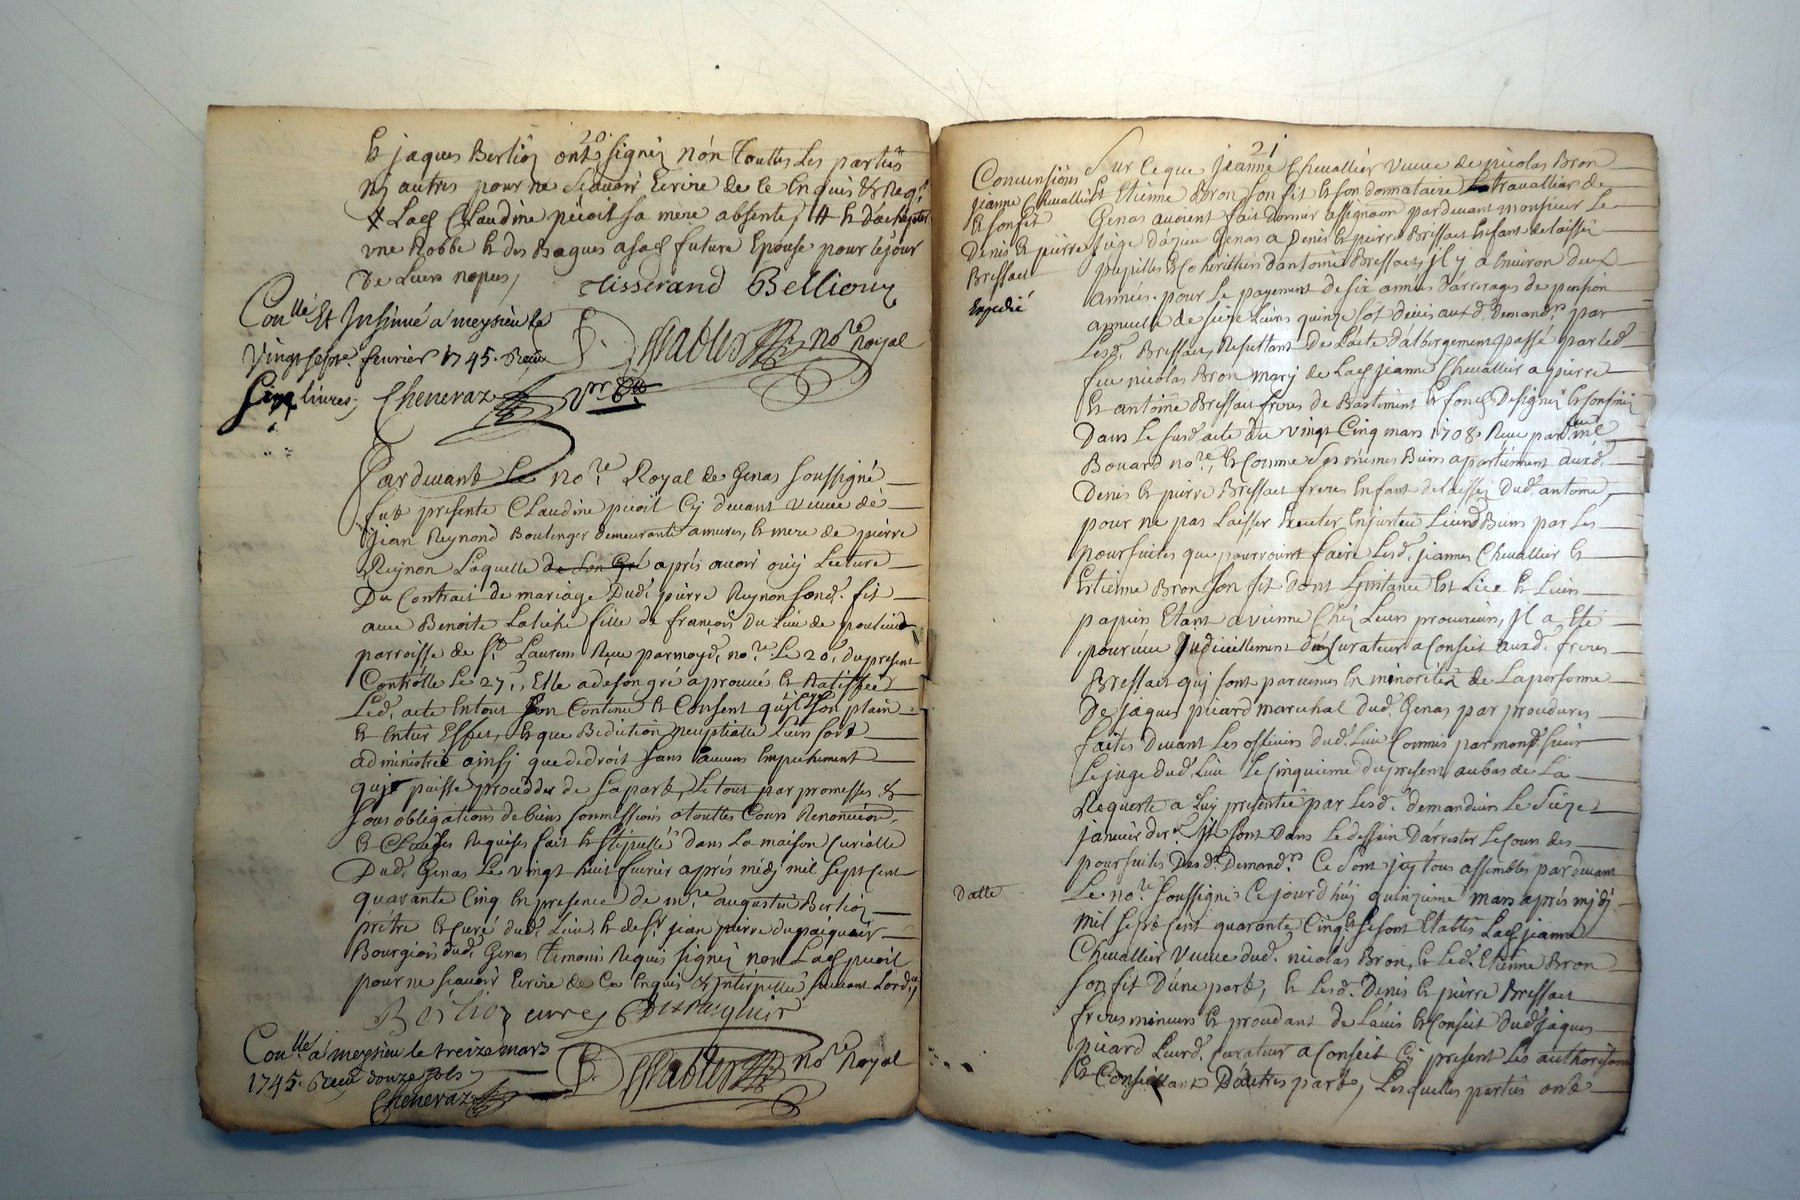 20
et jaques Berlioz onts signéz nón touttes Les parties
ny autres pour ne sçauoir Ecrire de ce Enquis & Req.
# Lad. Claudine piẽoit sa mere absente, # et d'achepter
vne Robbe et des Bagues a sad. future Epouse pour le jour
de Leurs nopces,
Tisserand Bellioux
Conllé Et Insinué a meysieu le
vingt sept.e feurier 1745. Reçu
Cinq liures, Cheneraz
Nore Royal
Pardeuant Le Nore Royal de Genas soussigné
fut presente Claudine piẽoit Cy deuant veuue de
jean Reynond Boulenger demeurante a mures, et mere de pierre
Reynon Laquelle de son Gré aprés auoir ouy Lecture
Du Contrait de mariage Dud. pierre Reynon sond. fit
auec Benoite fille de françois du Lieu de
parroisse de St. Laurens Reçu par moyd. nore Le 20. du present
Controllé Le 27., Elle a de son gré aprouué et Ratiffié
Led. acte En tout son Contenu et Consent qu'il son plain
et Entier Effet, et que Bediction neuptialle Leur soit
administrée ainsy que de droit sans aucuns Empechement
qu'jl puisse proceddèr de sa part, Le tout par promesses &
sous obligations de biens sommissions a touttes Cours Renonciãon,
et Clauses Requises fait et stipullé dans La maison Curialle
Dud. Genas Le vingt huit feurier aprés midj mil sept cent
quarante Cinq En presence de mre augustin Berlioz
prétre et curé dud. Lieu, et de sr jean pierre dupaiquair
Bourgeois dud. Genas Temoins Requis signéz non Lad. piẽoit
pour ne sçauoir Ecrire de Ce Enquis & interpellé suiuant Lord.ce,
Berlioz curé Dupaquier
Conllé a meysieu le treize mars
1745. Reçu douze sols
Cheneraz
Nore Royal
21
Conuensions
jeanne Cheuallier
et son fit
Denis et pierre
Bressaet
Expedié
Sur Ce que Jeanne Cheuallier veuue de nicolas Bron
et Etienne Bron son fit et son donnataire trauallier de
Genas auoient fait donner assignaõn pardeuant monsieur Le
juge dajeu Genas a Denis et pierre Bressaet Enfant delaissés
pupilles et Coheritiers d'antoine Bressaet, jl y a Enuiron deux
années. pour Le payement de six années d'arrerages de pension
annuelle de seize Liures quinze sols deües auxd. demandrs par
Lesd. Bressaet, Resultant de L'acte d'albergement passé par led.
feu nicolas Bron mary de Lad. jeanne Cheuallier a pierre
et antoine Bressaet freres de Bastiment et fond Designéz et Confinéz
Dans Le susd. acte du vingt Cinq mars 1708. Reçu par feu me
Bouard nore, et Comme Les mémes Biens apartiennent auxd.
Denis et pierre Bressaet freres Enfant delaisséz dud. antoine,
pour ne pas Laisser Executer En justice Leurd. Biens par Les
poursuites que pourroient faire Lesd. jeannes Cheuallier et
Estienne Bron son fit dont L'instance Est Liée et Leurs
papiers Etant a vienne chéz Leurs procureurs, Jl a Esté
pourueu Judiciellement d'un Curateur a Conseit auxd. freres
Bressaet quj sont paruenus En minorité de La personne
De jaques picard marechal dud. Genas par procedures
faites deuant Les officiers dud. Lieu Commis par mond. sieur
Le juge dud. Lieu Le Cinquieme du present au bas de La
Requeste a Luy presentée par Lesd. demandeurs Le seize
januier der. Jls sont dans Le dessein d'arrester Le Cours des
poursuites Desd. Demandrs Ce sont jcy tous assemblés pardeuant
datte
Le nore soussigné Ce jourd'huj quinzieme mars aprés midj
mil sept Cent quarante Cinq se sont Etablis Lad. jeanne
Cheuallier veuue dud. nicolas Bron, et Led. Etienne Bron
son fit D'une part, et Lesd. Denis et pierre Bressaet
freres mineurs et procedant de L'auis et Conseit dud. jaques
picard Leurd. Curateur a Conseit Cy present Les authorisant
Et Conseillant D'autres part, Lesquelles parties ont